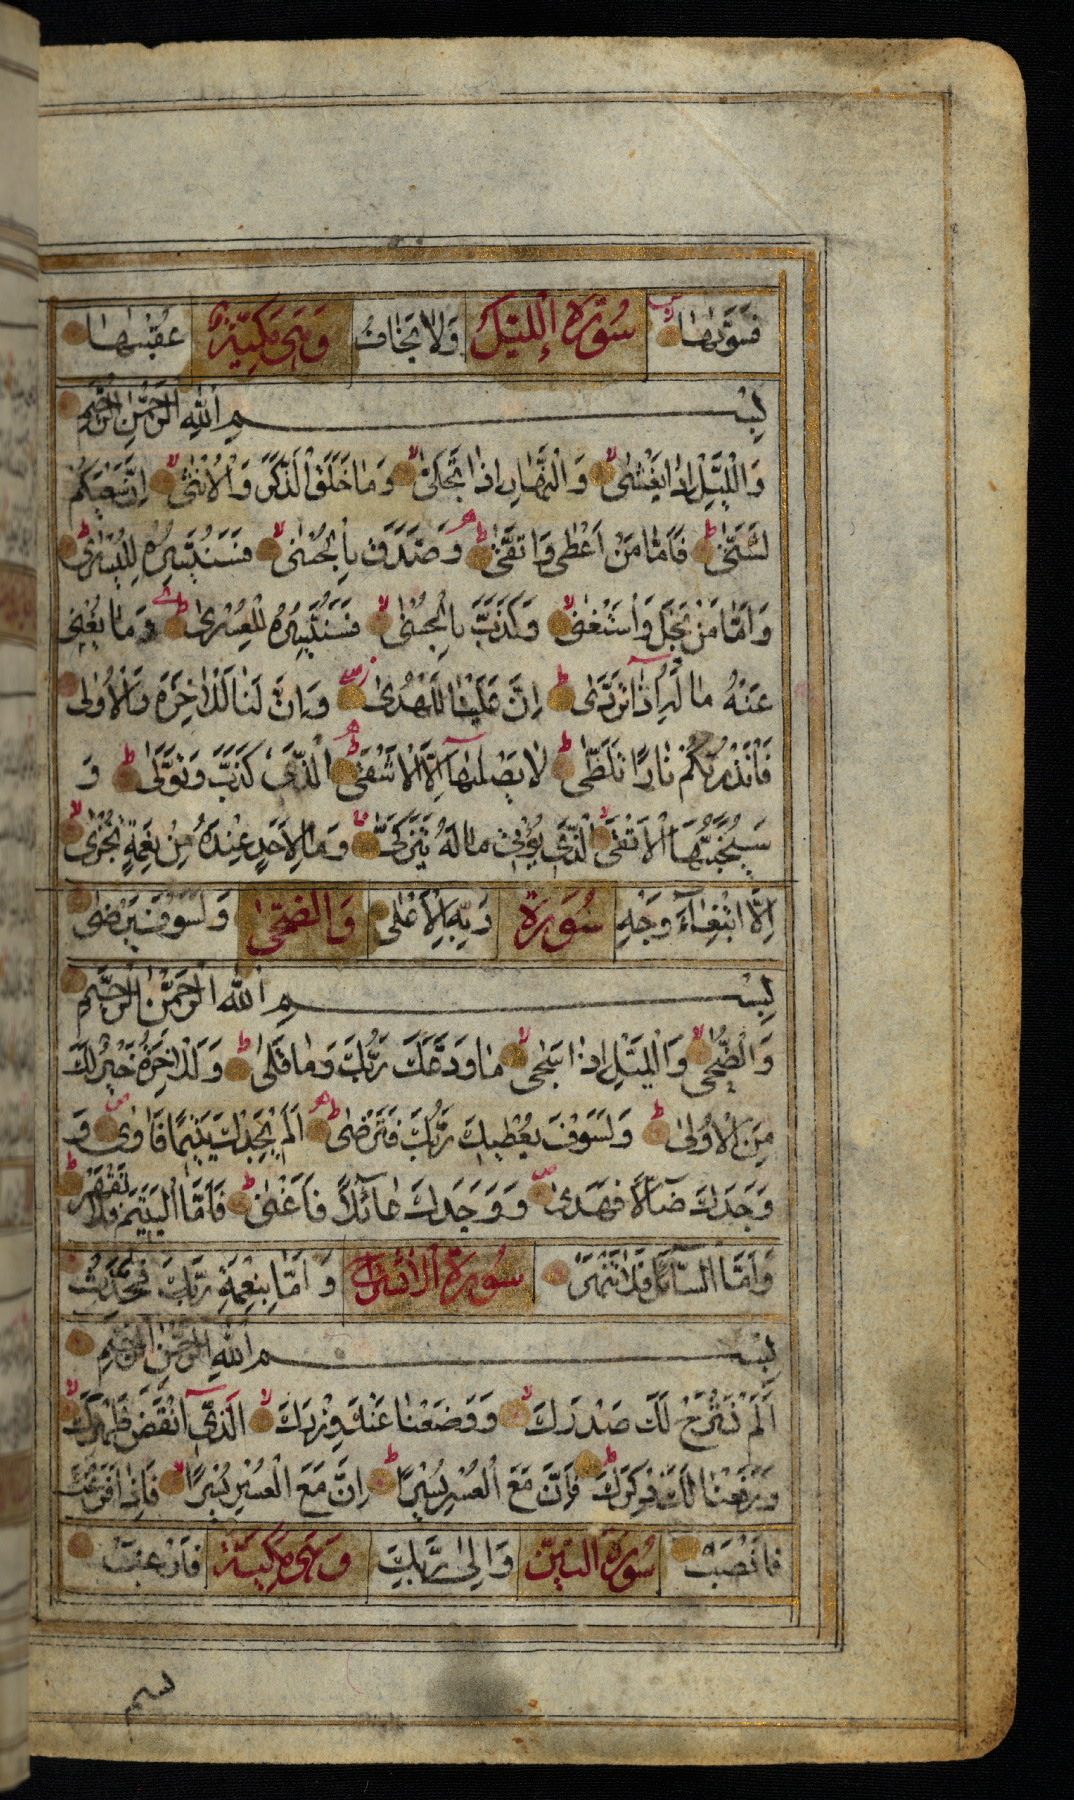 فَسَوّٰىهَا سُوْرَةُ الَّيْلِ وَلَا يَخَافُ وَهِيَ مَكِّيَّةٌ عُقْبٰهَا
بِسْمِ اللّٰهِ الرَّحْمٰنِ الرَّحِيْمِ
وَالَّيْلِ اِذَا يَغْشٰى وَالنَّهَارِ اِذَا تَجَلّٰى وَمَا خَلَقَ الذَّكَرَ وَالْاُنْثٰى اِنَّ سَعْيَكُمْ
لَشَتّٰى فَاَمَّا مَنْ اَعْطٰى وَاتَّقٰى وَصَدَّقَ بِالْحُسْنٰى فَسَنُيَسِّرُهُ لِلْيُسْرٰى
وَاَمَّا مَنْ بَخِلَ وَاسْتَغْنٰى وَكَذَّبَ بِالْحُسْنٰى فَسَنُيَسِّرُهُ لِلْعُسْرٰى وَمَا يُغْنِى
عَنْهُ مَالُهُ اِذَا تَرَدّٰى اِنَّ عَلَيْنَا لَلْهُدٰى وَاِنَّ لَنَا لَلْاٰخِرَةَ وَالْاُوْلٰى
فَاَنْذَرْتُكُمْ نَارًا تَلَظّٰى لَا يَصْلٰىهَا اِلَّا الْاَشْقَى الَّذِىْ كَذَّبَ وَتَوَلّٰى وَ
سَيُجَنَّبُهَا الْاَتْقَى الَّذِىْ يُؤْتِىْ مَالَهُ يَتَزَكّٰى وَمَا لِاَحَدٍ عِنْدَهُ مِنْ نِعْمَةٍ تُجْزٰى
اِلَّا ابْتِغَآءَ وَجْهِ سُوْرَةُ رَبِّهِ الْاَعْلٰى وَالضُّحٰى وَلَسَوْفَ يَرْضٰى
بِسْمِ اللّٰهِ الرَّحْمٰنِ الرَّحِيْمِ
وَالضُّحٰى وَالَّيْلِ اِذَا سَجٰى مَا وَدَّعَكَ رَبُّكَ وَمَا قَلٰى وَلَلْاٰخِرَةُ خَيْرٌ لَكَ
مِنَ الْاُوْلٰى وَلَسَوْفَ يُعْطِيْكَ رَبُّكَ فَتَرْضٰى اَلَمْ يَجِدْكَ يَتِيْمًا فَاٰوٰى وَ
وَجَدَكَ ضَآلًّا فَهَدٰى وَوَجَدَكَ عَآئِلًا فَاَغْنٰى فَاَمَّا الْيَتِيْمَ فَلَا تَقْهَرْ
وَاَمَّا السَّآئِلَ فَلَا تَنْهَرْ سُوْرَةُ الْاِنْشِرَاحِ وَاَمَّا بِنِعْمَةِ رَبِّكَ فَحَدِّثْ
بِسْمِ اللّٰهِ الرَّحْمٰنِ الرَّحِيْمِ
اَلَمْ نَشْرَحْ لَكَ صَدْرَكَ وَوَضَعْنَا عَنْكَ وِزْرَكَ الَّذِىْ اَنْقَضَ ظَهْرَكَ
وَرَفَعْنَا لَكَ ذِكْرَكَ فَاِنَّ مَعَ الْعُسْرِ يُسْرًا اِنَّ مَعَ الْعُسْرِ يُسْرًا فَاِذَا فَرَغْتَ
فَانْصَبْ سُوْرَةُ التِّيْنِ وَاِلٰى رَبِّكَ وَهِيَ مَكِّيَّةٌ فَارْغَبْ
بسم